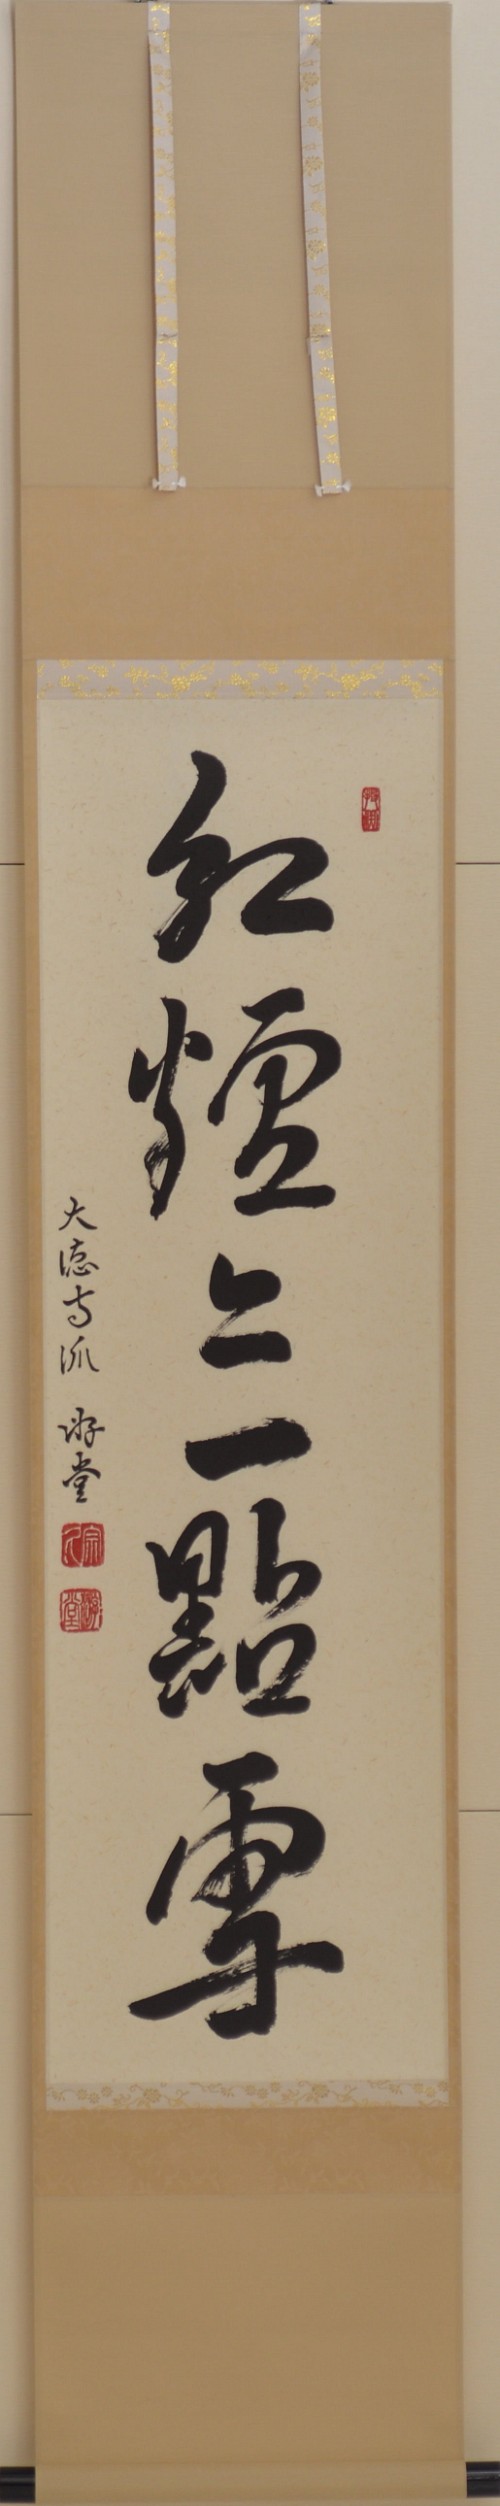 紅爐上一點雪
大徳寺派 游堂